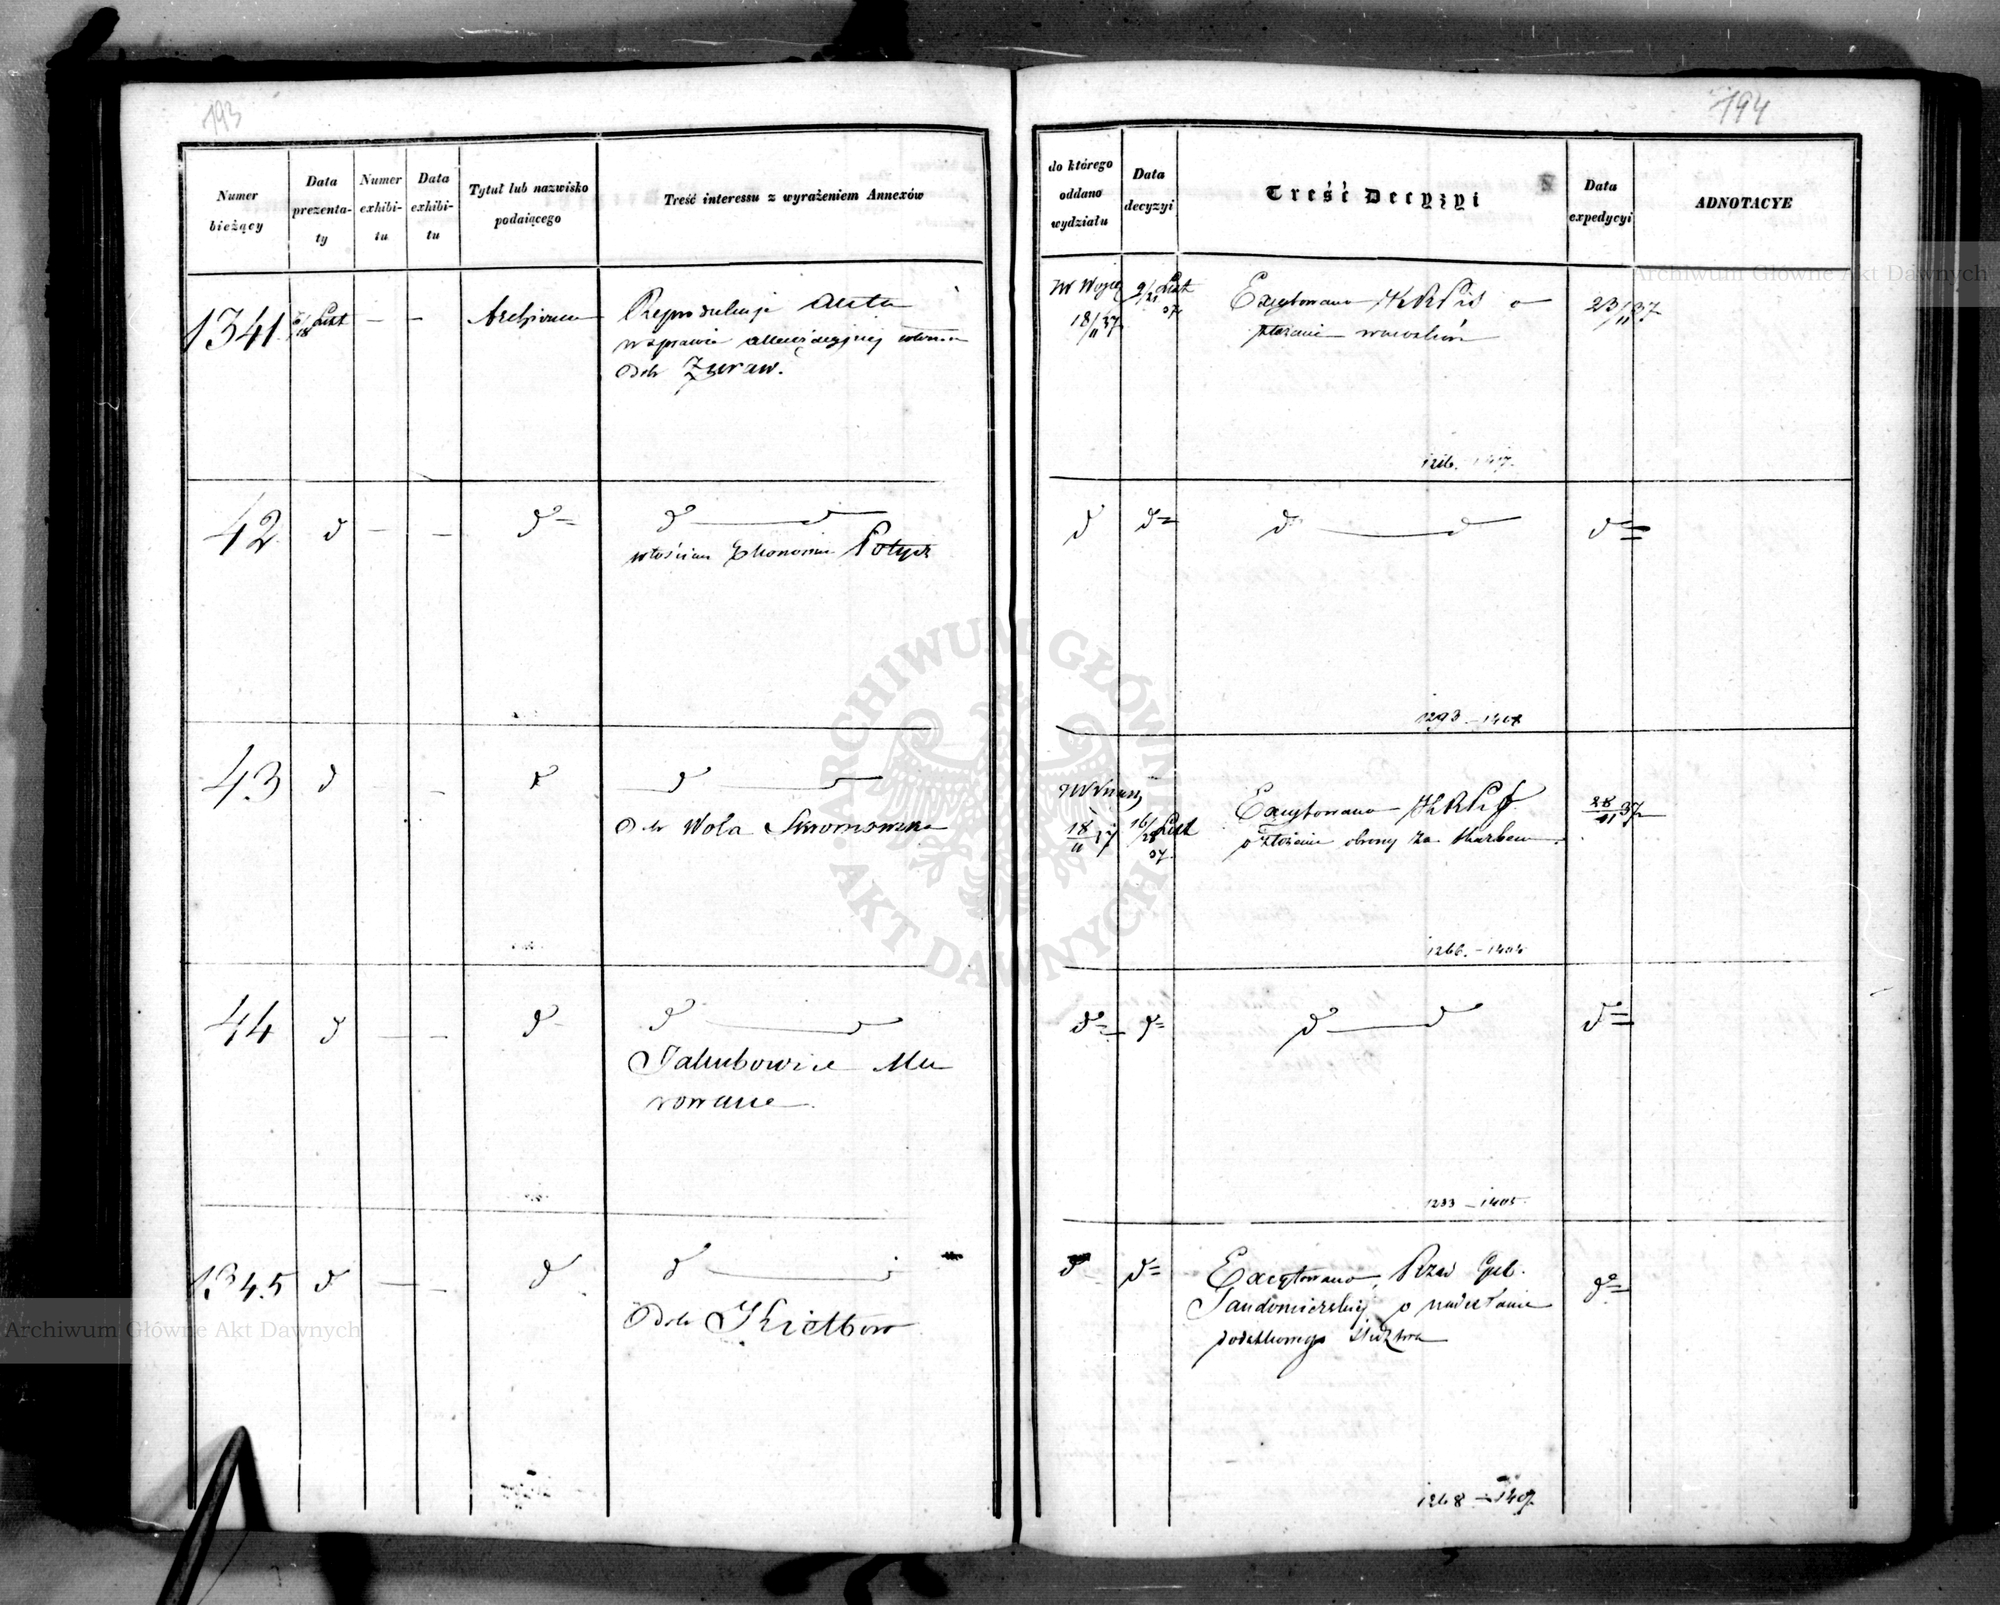 193
Numer
bieżący
Data
prezenta-
ty
Numer
exhibi-
tu
Data
exhibi-
tu
Tytuł lub nazwisko
podaiącego
Treść interessu z wyrażeniem Annexów
1341
6/18 List
Archiwum
Reprodukuje akta
w sprawie
Dóbr Żuraw.
42
d
d
d d
włościan Ekonomii
43
d
d
d d
Dóbr Wola
44
d
d
d d
Jakubowice Mu
rowane
1345
d
d
d
Dóbr Kiełbow
194
do którego
oddano
wydziału
Data
decyzyi
Treść Decyzyi
Data
expedycyi
ADNOTACYE
18/11 37
9/21 List
37
Excytowano o
złożenie
23/11 37
d
d
d d
d
1293 - 1408
18/11 37
16/28 List
37
Excytowano
o złożenie obrony za Skarbem
28/11 37
1266. - 1404
d
d
d d
d
1233 - 1405
d
d
Excytowano Rząd Gub.
Sandomierskiej o nadesłanie
dodatkowego śledztwa
d
1268 - 1407
ARCHIWUM GŁÓWNE
AKT DAWNYCH
Archiwum Główne Akt Dawnych
Archiwum Główne Akt Dawnych